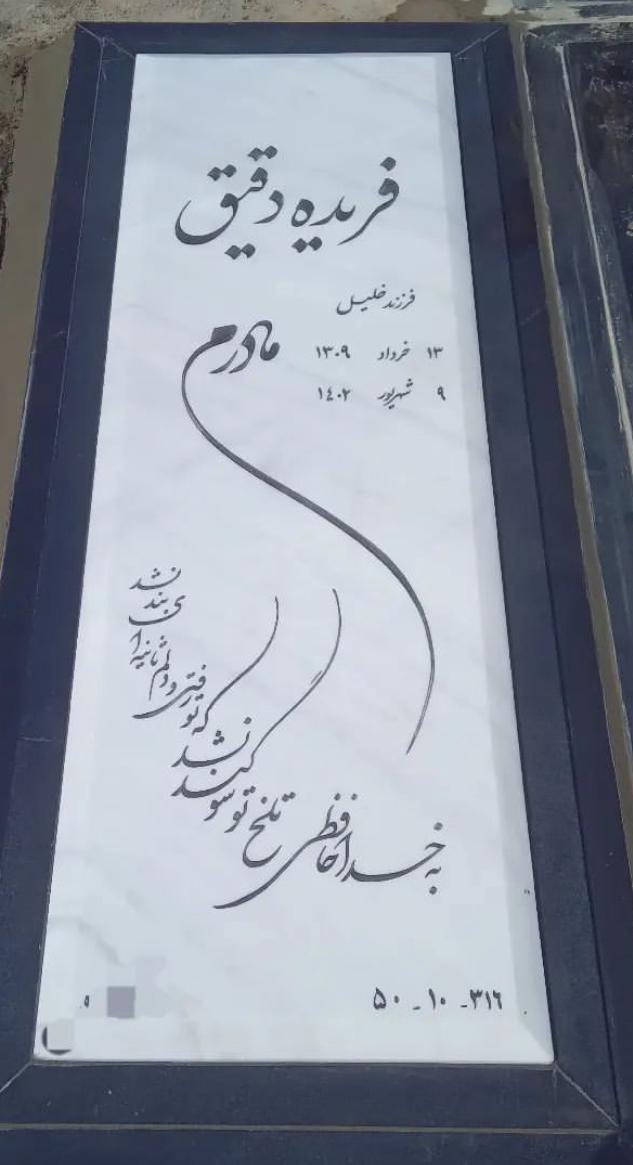 فریده دقیق
فرزند خلیل
۱۳ خرداد ۱۳۰۹
۹ شهریور ۱۴۰۲
مادرم
به خداحافظی تلخ تو سوگند نشد
که تو رفتی و دلم ثانیه ای بند نشد
۳۱۶ - ۱۰ - ۵۰